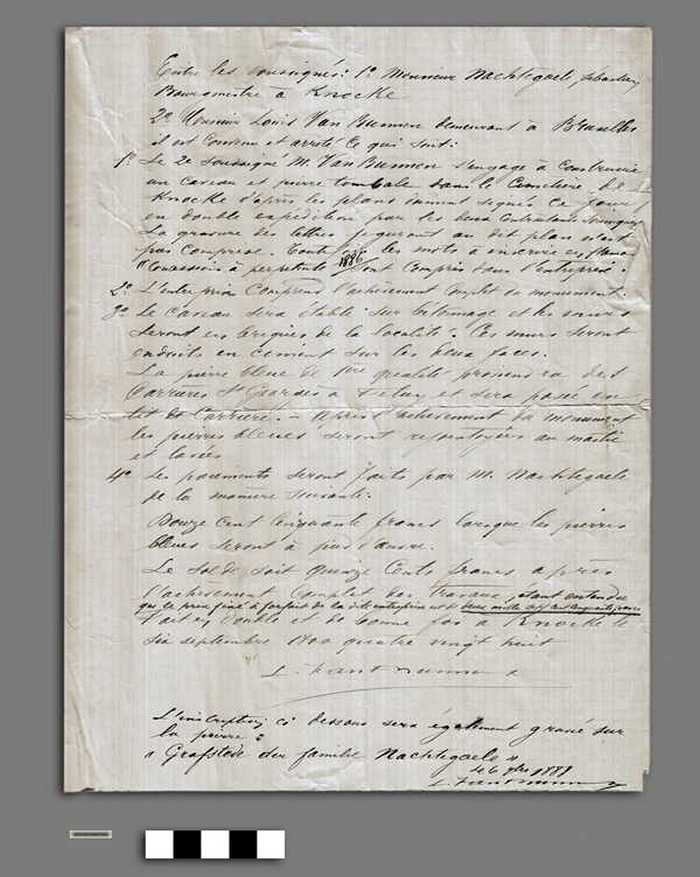 Entre les soussignés: 1° Monsieur Nachtegaele, Sébastien
Bourgmestre à Knocke
2° Monsieur Louis Van Bunnen demeurant à Bruxelles
il est convenu et arrêté ce qui suit:
1° Le 2e soussigné M. Van Bunnen s'engage à construire
un caveau et pierre tombale dans le cimetière de
Knocke d'après les plans dûment signés ce jour
en double expédition par les deux contractants
La gravure des lettres figurant au dit plan n'est
pas comprise. Toutefois les mots à inscrire
"Concession à perpétuité 1886 sont compris dans l'entreprise.
2° L'entreprise comprend l'achèvement complet du monument.
3° Le caveau sera établi sur bétonnage et les murs
seront en briques de la localité. Ces murs seront
enduits en ciment sur les deux faces.
La pierre bleue de 1ère qualité proviendra des
Carrières St Georges à Feluy et sera posée en
lit de carrière. Après l'achèvement du monument
les pierres bleues seront rejointoyées au mastic
et lavées
4° Les paiements seront faits par M. Nachtegaele
de la manière suivante:
Douze cent cinquante francs lorsque les pierres
bleues seront à pied d'œuvre.
Le solde soit quinze cents francs après
l'achèvement complet des travaux, étant entendu
que le prix fixé à forfait de la dite entreprise est de deux mille sept cent cinquante francs
Fait en double et de bonne foi à Knocke le
six septembre 1800 quatre vingt huit
L'inscription ci dessous sera également gravé sur
la pierre:
"Grafstede der familie Nachtegaele"
le 6 7bre 1888